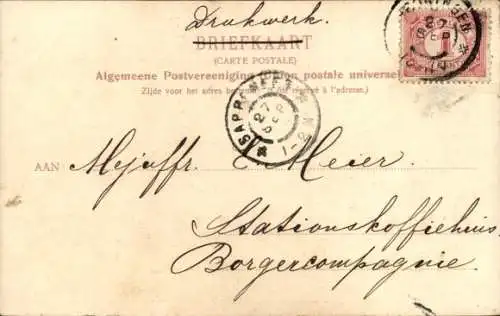 Drukwerk.
BRIEFKAART
(CARTE POSTALE)
Algemeene Postvereeniging (Union postale universelle)
Zijde voor het adres bestemd. (Côté réservé à l'adresse.)
SAPPEMEER
27 SEP
1-2N
AAN Mejuffr. E Meier.
Stationskoffiehuis
Borgercompagnie.